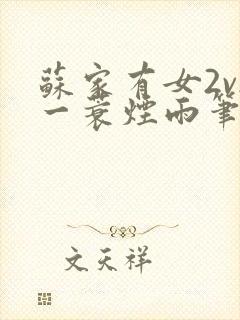 蘇家有女2v
一蓑煙雨筆
文天祥